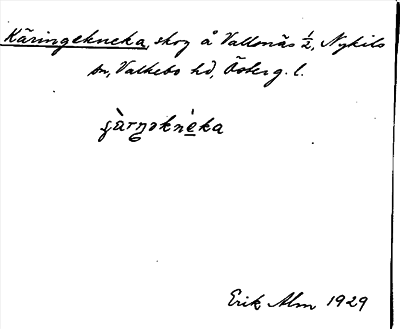 Käringekneka, skog å Vallsnäs ½, Nykils
sn, Valkebo hd, Österg. l.
Erik Alm 1929